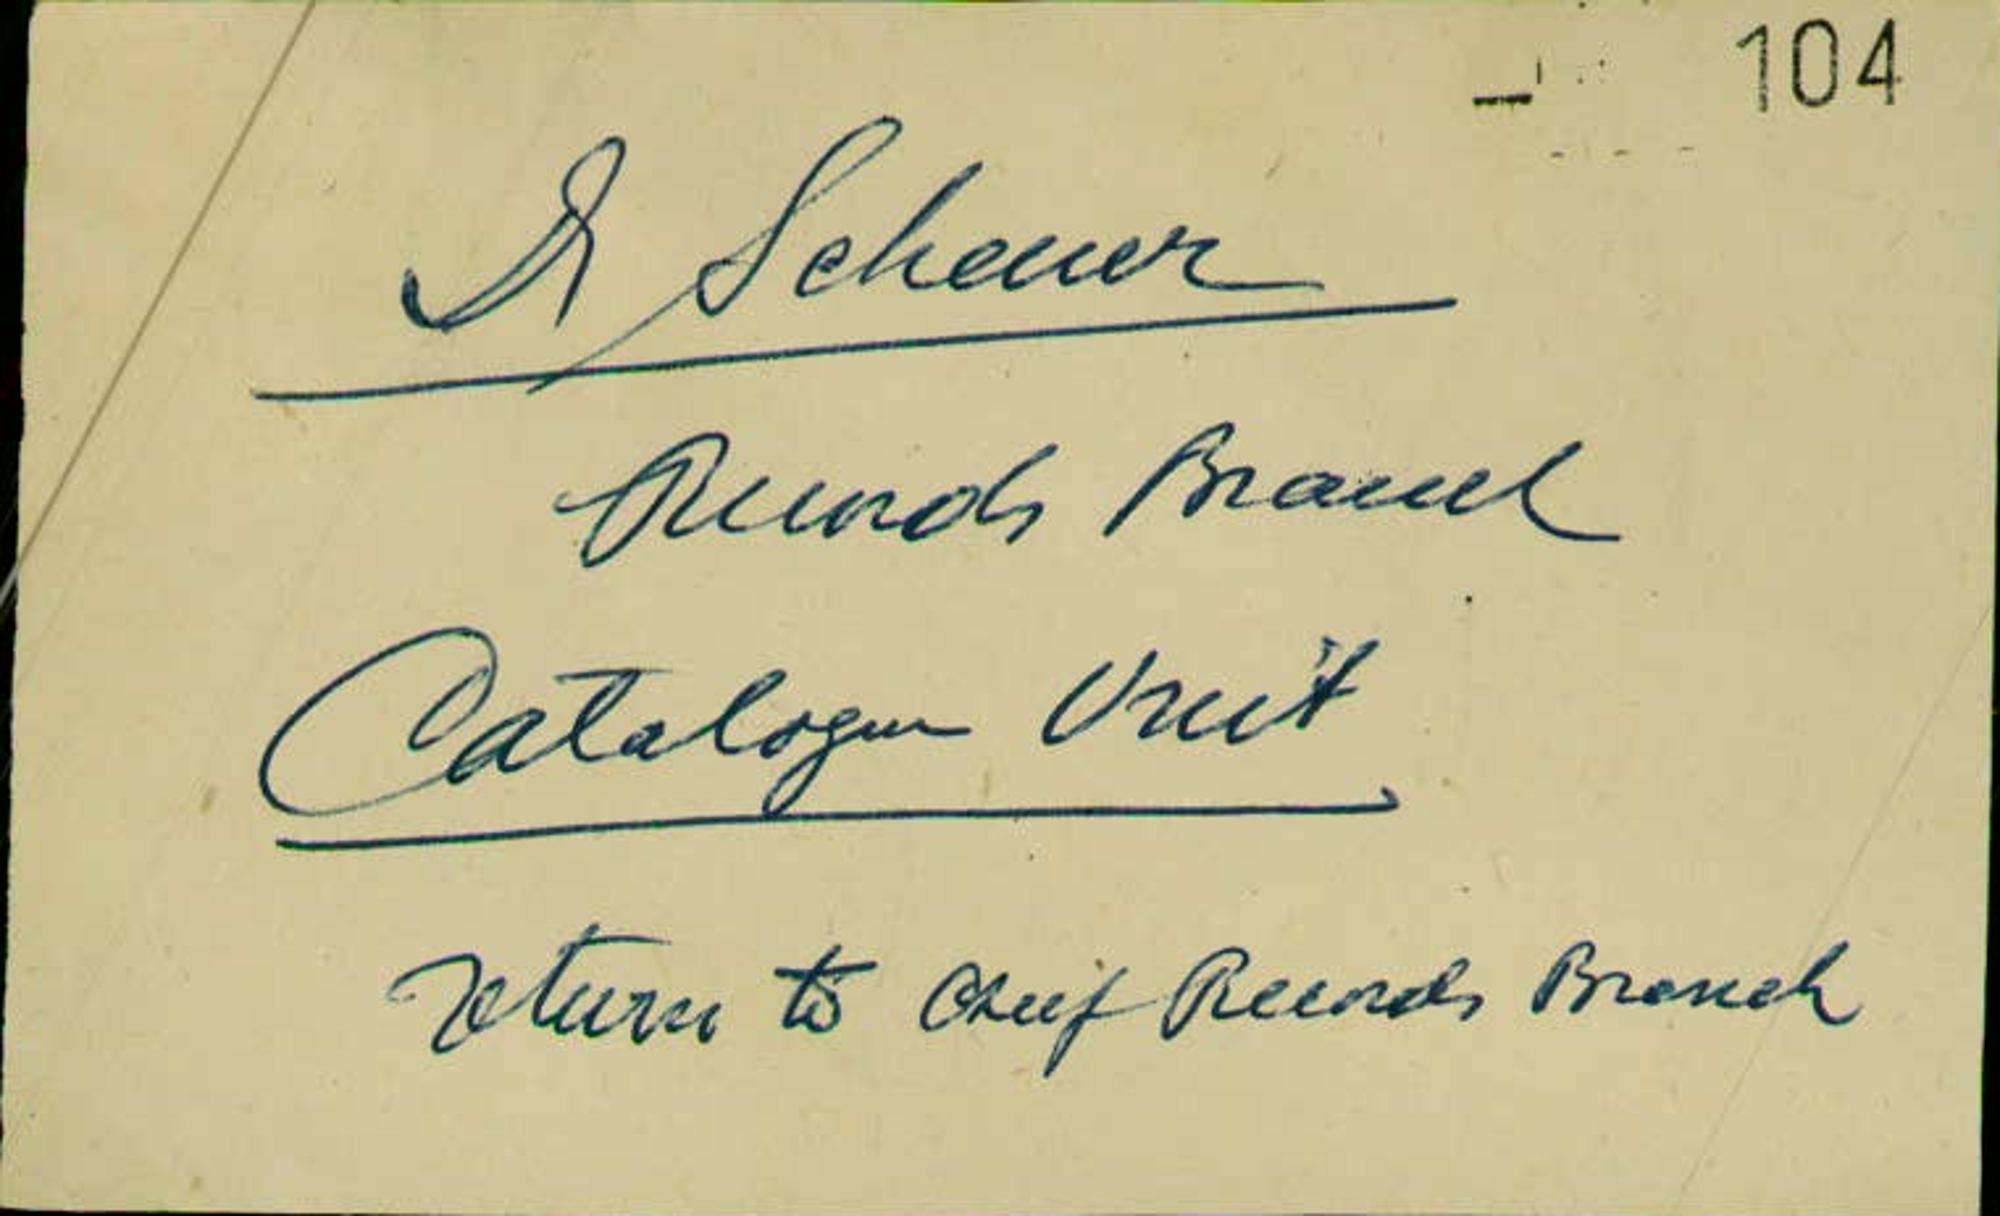 104
Dr Scheuer
Records Branch
Catalogue Unit
return to Chief Records Branch